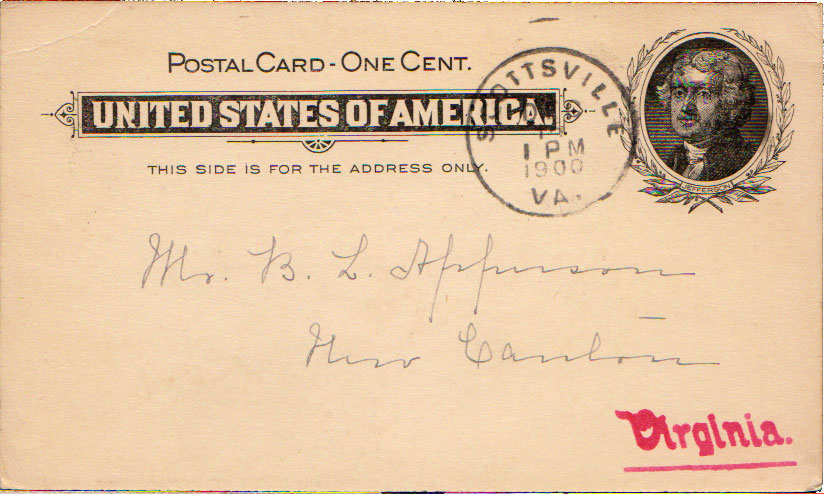 POSTAL CARD - ONE CENT.
UNITED STATES OF AMERICA.
THIS SIDE IS FOR THE ADDRESS ONLY.
SCOTTSVILLE
1 PM
1900
VA.
JEFFERSON
Mr. B. L. Apperson
New Canton
Virginia.